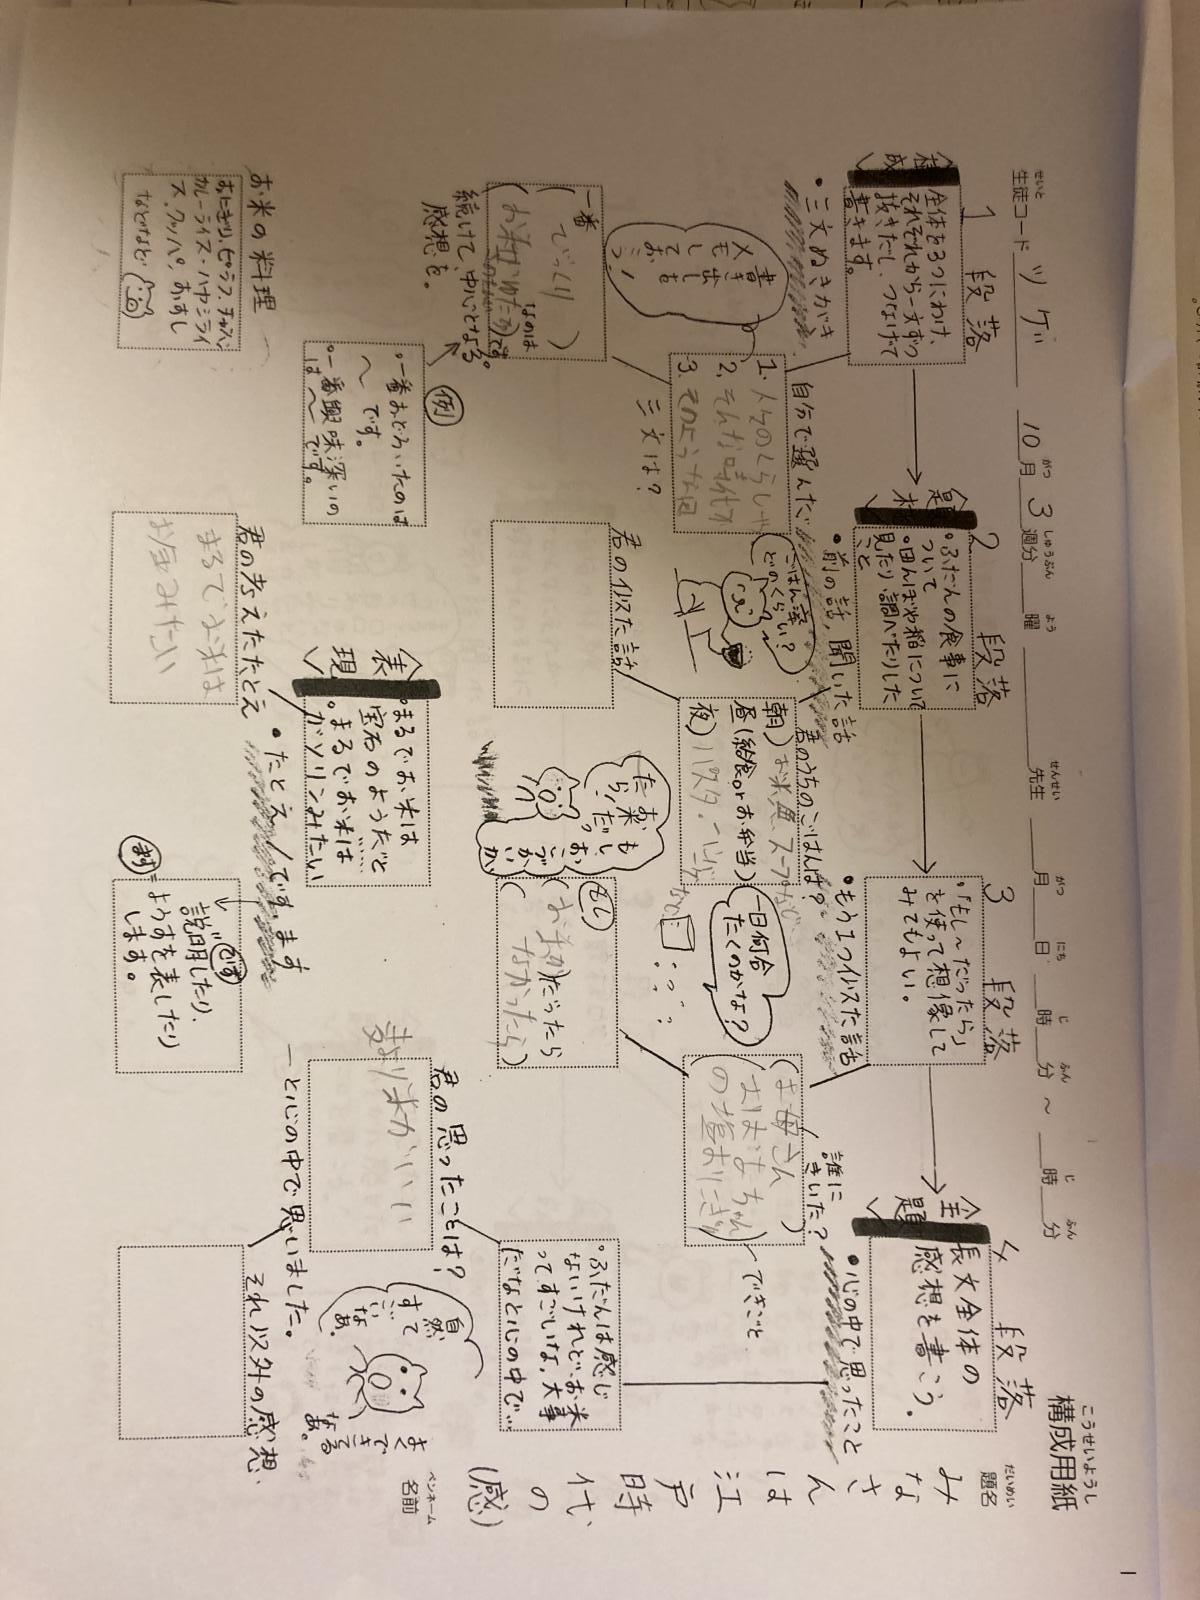 構成用紙
こうせいようし
生徒コード ツゲ 10月3週分 曜 先生 月 日 時 分 ~ 時 分
せいと がつ しゅうぶん よう せんせい がつ にち じ ふん じ ふん
題名
だいめい
みなさんは江戸時代の(感)
ペンネーム
名前
1
1段落
<構成>
全体を3つにわけ、
それぞれから一文ずつ
抜きだし、つなげて
書きます。
・三文ぬきがき
書き出しも
メモして
おこう!
自分で選んだ
三文は?
1、人々のくらしや
2、そんな時代が
3、そのような
一番
(びっくり)
なのは
(お米がゆたか)です。
続けて、中心となる
感想を。
例
・一番おどろいたのは
~です。
・一番興味深いの
は~です。
お米の料理
おにぎり、ピラフ、チャーハン
カレーライス・ハヤシライ
ス、クッパ、おすし
などなど
2段落
<題材>
・ふだんの食事に
ついて
・田んぼや稲について
見たり調べたりした
こと
・前の話、聞いた話
ごはん茶わん
どのくらい?
君のうちのごはんは?
朝)お米、魚、スープなど
昼(給食orお弁当)
夜)パスタ、
一日何合
たくのかな?
君の似た話
<表現>
・まるでお米は
宝石のようだと
・まるでお米は
ガソリンみたい
・たとえ
君の考えたたとえ
まるでお米は
お金みたい
説明したり、
ようすを表したり
します。
3段落
・「もし~だったら」
を使って想像して
みてもよい。
・もう1つ似た話
誰に
きいた?
(お母さん)
(おばあちゃん
の塩おにぎり)
できごと
もし
(お米が)だったら
(なかったら)
お米
だっ
たら!
4段落
<主題>
長文全体の
感想を書こう。
・心の中で思ったこと
・ふだんは感じ
ないけれど、お米
ってすごいな、大事
だなと心の中で…
君の思ったことは?
麦より米がいい
―と心の中で思いました。
自然
って
すごい
なあ。
それ以外の感想、